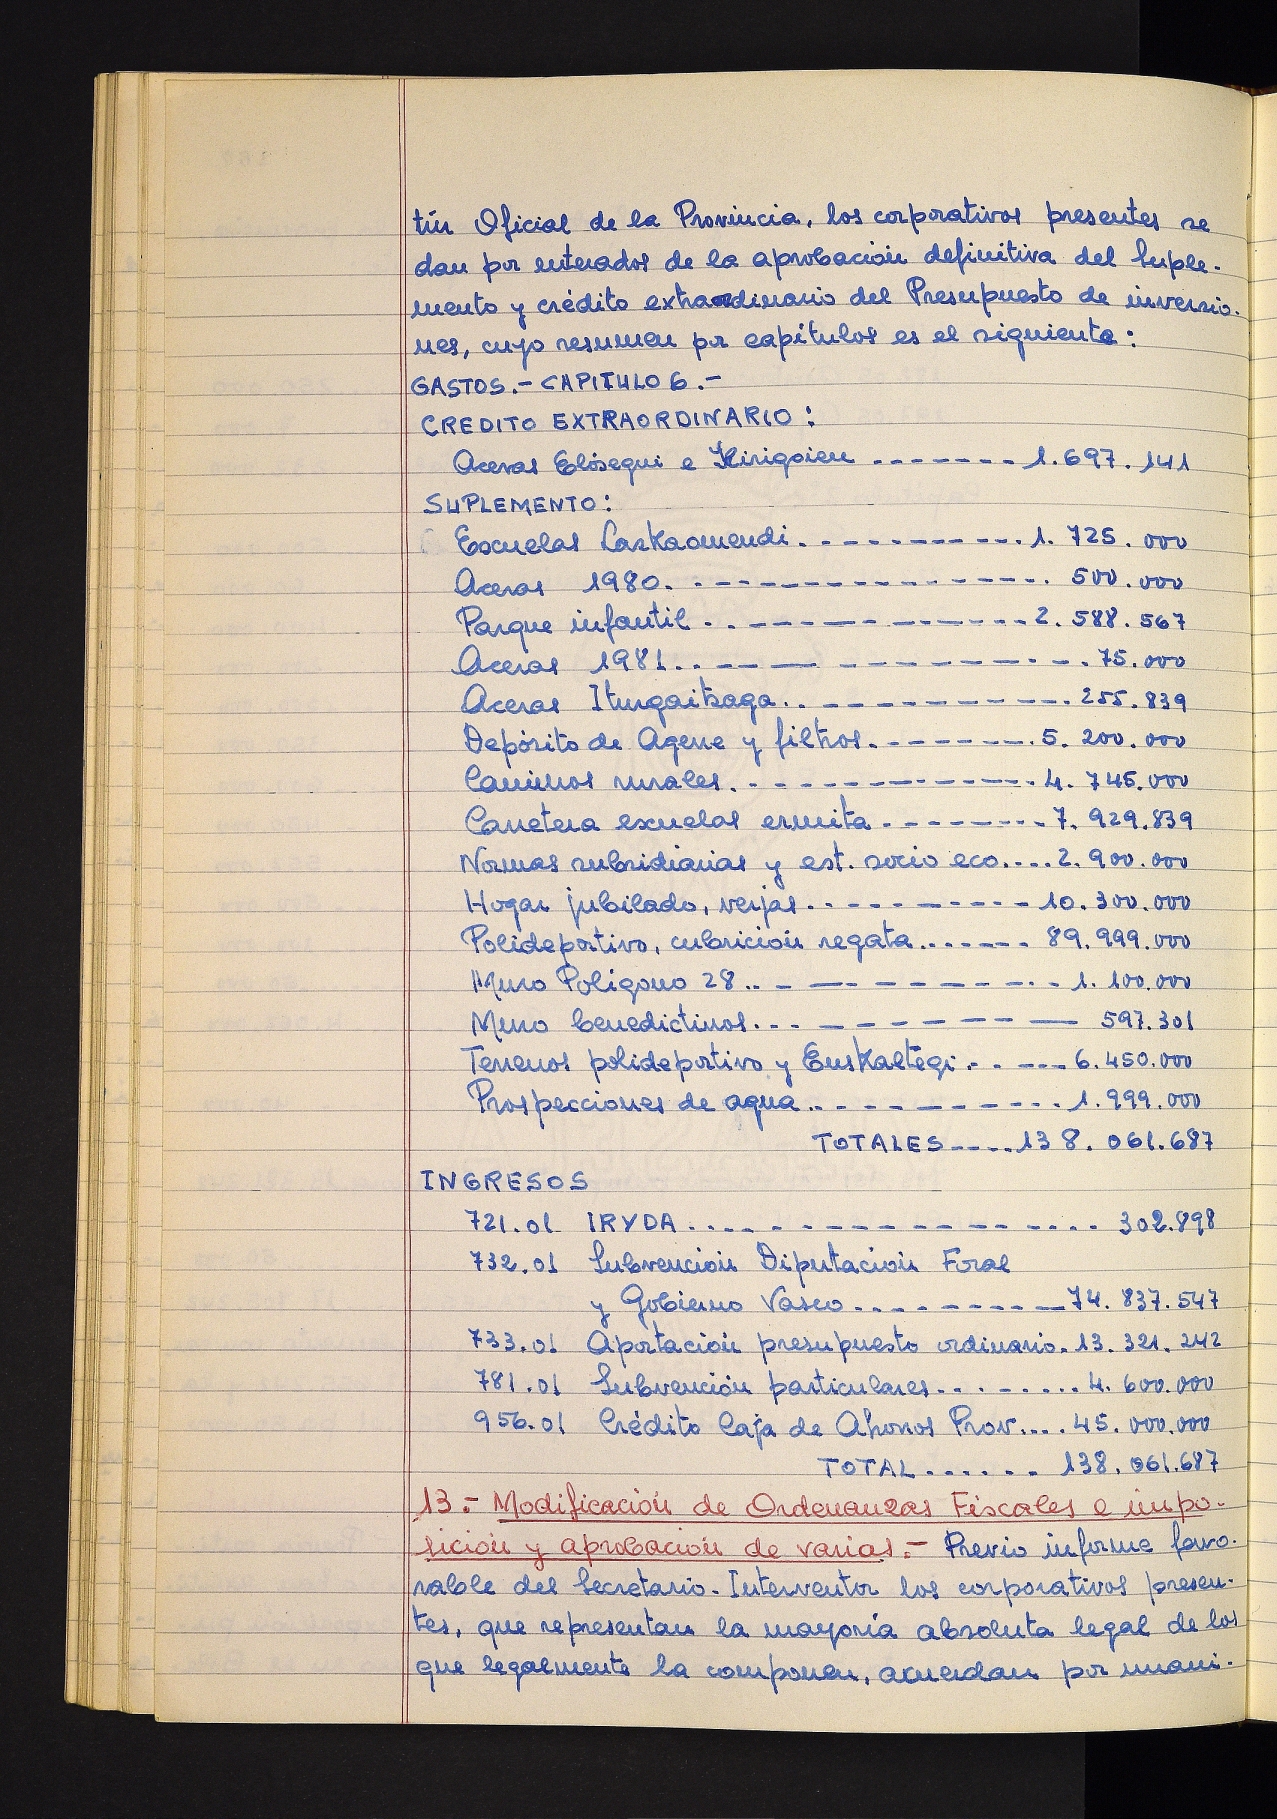 tín Oficial de la Provincia, los corporativos presentes se
dan por enterados de la aprobación definitiva del Suple-
mento y crédito extraordinario del Presupuesto de inversio-
nes, cuyo resumen por capítulos es el siguiente:
GASTOS.- CAPITULO 6.-
CREDITO EXTRAORDINARIO:
Aceras Elósegui e Hirigoien -------1.697.141
SUPLEMENTO:
Escuelas Lazkaomendi.-----------1.725.000
Aceras 1980.---------------- 500.000
Parque infantil..------------2.588.567
Aceras 1981..-------------75.000
Aceras Iturgaitzaga..-----------255.839
Depósito de Agene y filtros.-------5.200.000
Caminos rurales.--------------4.745.000
Carretera escuelas ermita--------7.929.839
Normas subsidiarias y est. socio eco....2.900.000
Hogar jubilado, verjas.----------10.300.000
Polideportivo, cubrición regata.------ 89.999.000
Muro Polígono 28..------------1.100.000
Muro benedictinos...--------- 597.301
Terrenos polideportivo y Euskaltegi.-----6.450.000
Prospecciones de agua..-----------1.999.000
TOTALES----138.061.687
INGRESOS
721.01 IRYDA.---------------- 302.898
732.01 Subvención Diputación Foral
y Gobierno Vasco.----------74.837.547
733.01 Aportación presupuesto ordinario.13.321.242
781.01 Subvención particulares.........4.600.000
956.01 Crédito Caja de Ahorros Prov....45.000.000
TOTAL...... 138.061.687
13.- Modificación de Ordenanzas Fiscales e impo-
sición y aprobación de varias.- Previo informe favo-
rable del Secretario-Interventor los corporativos presen-
tes, que representan la mayoría absoluta legal de los
que legalmente la componen, acuerdan por unani-